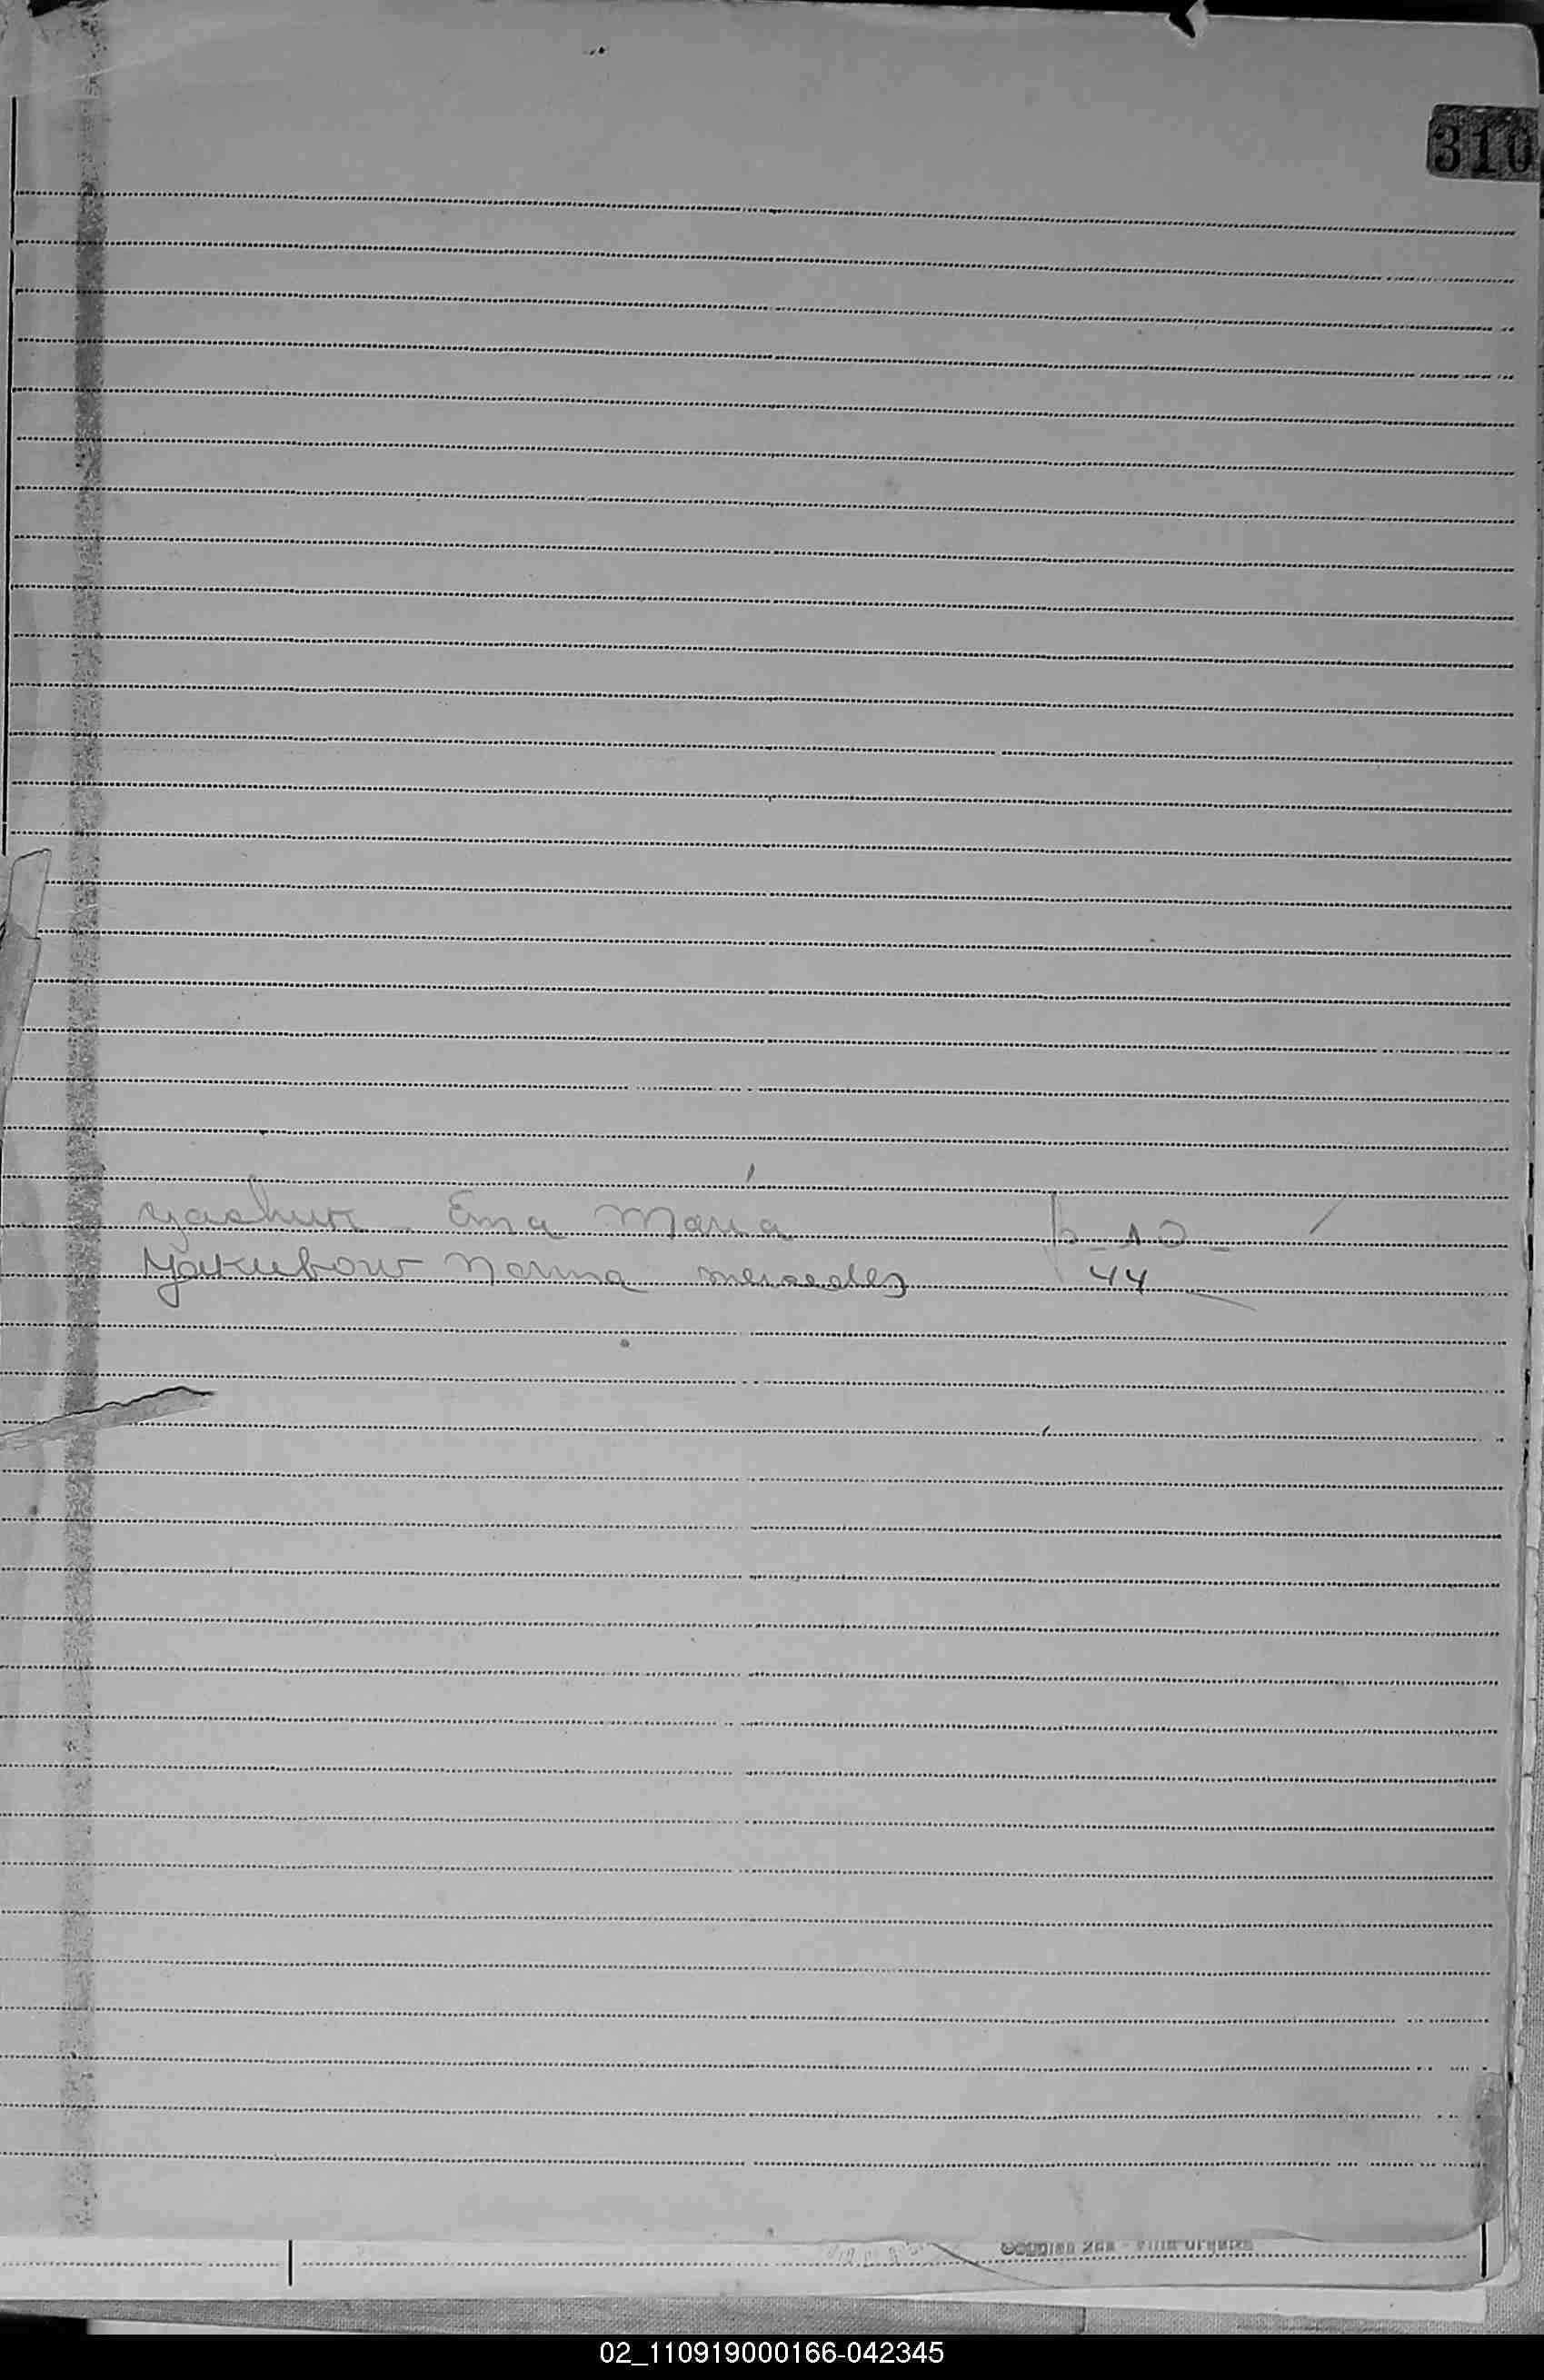 310
Yashuk - Ema María p-10-
Yakubow Norma mercedes 44
02_110919000166-042345